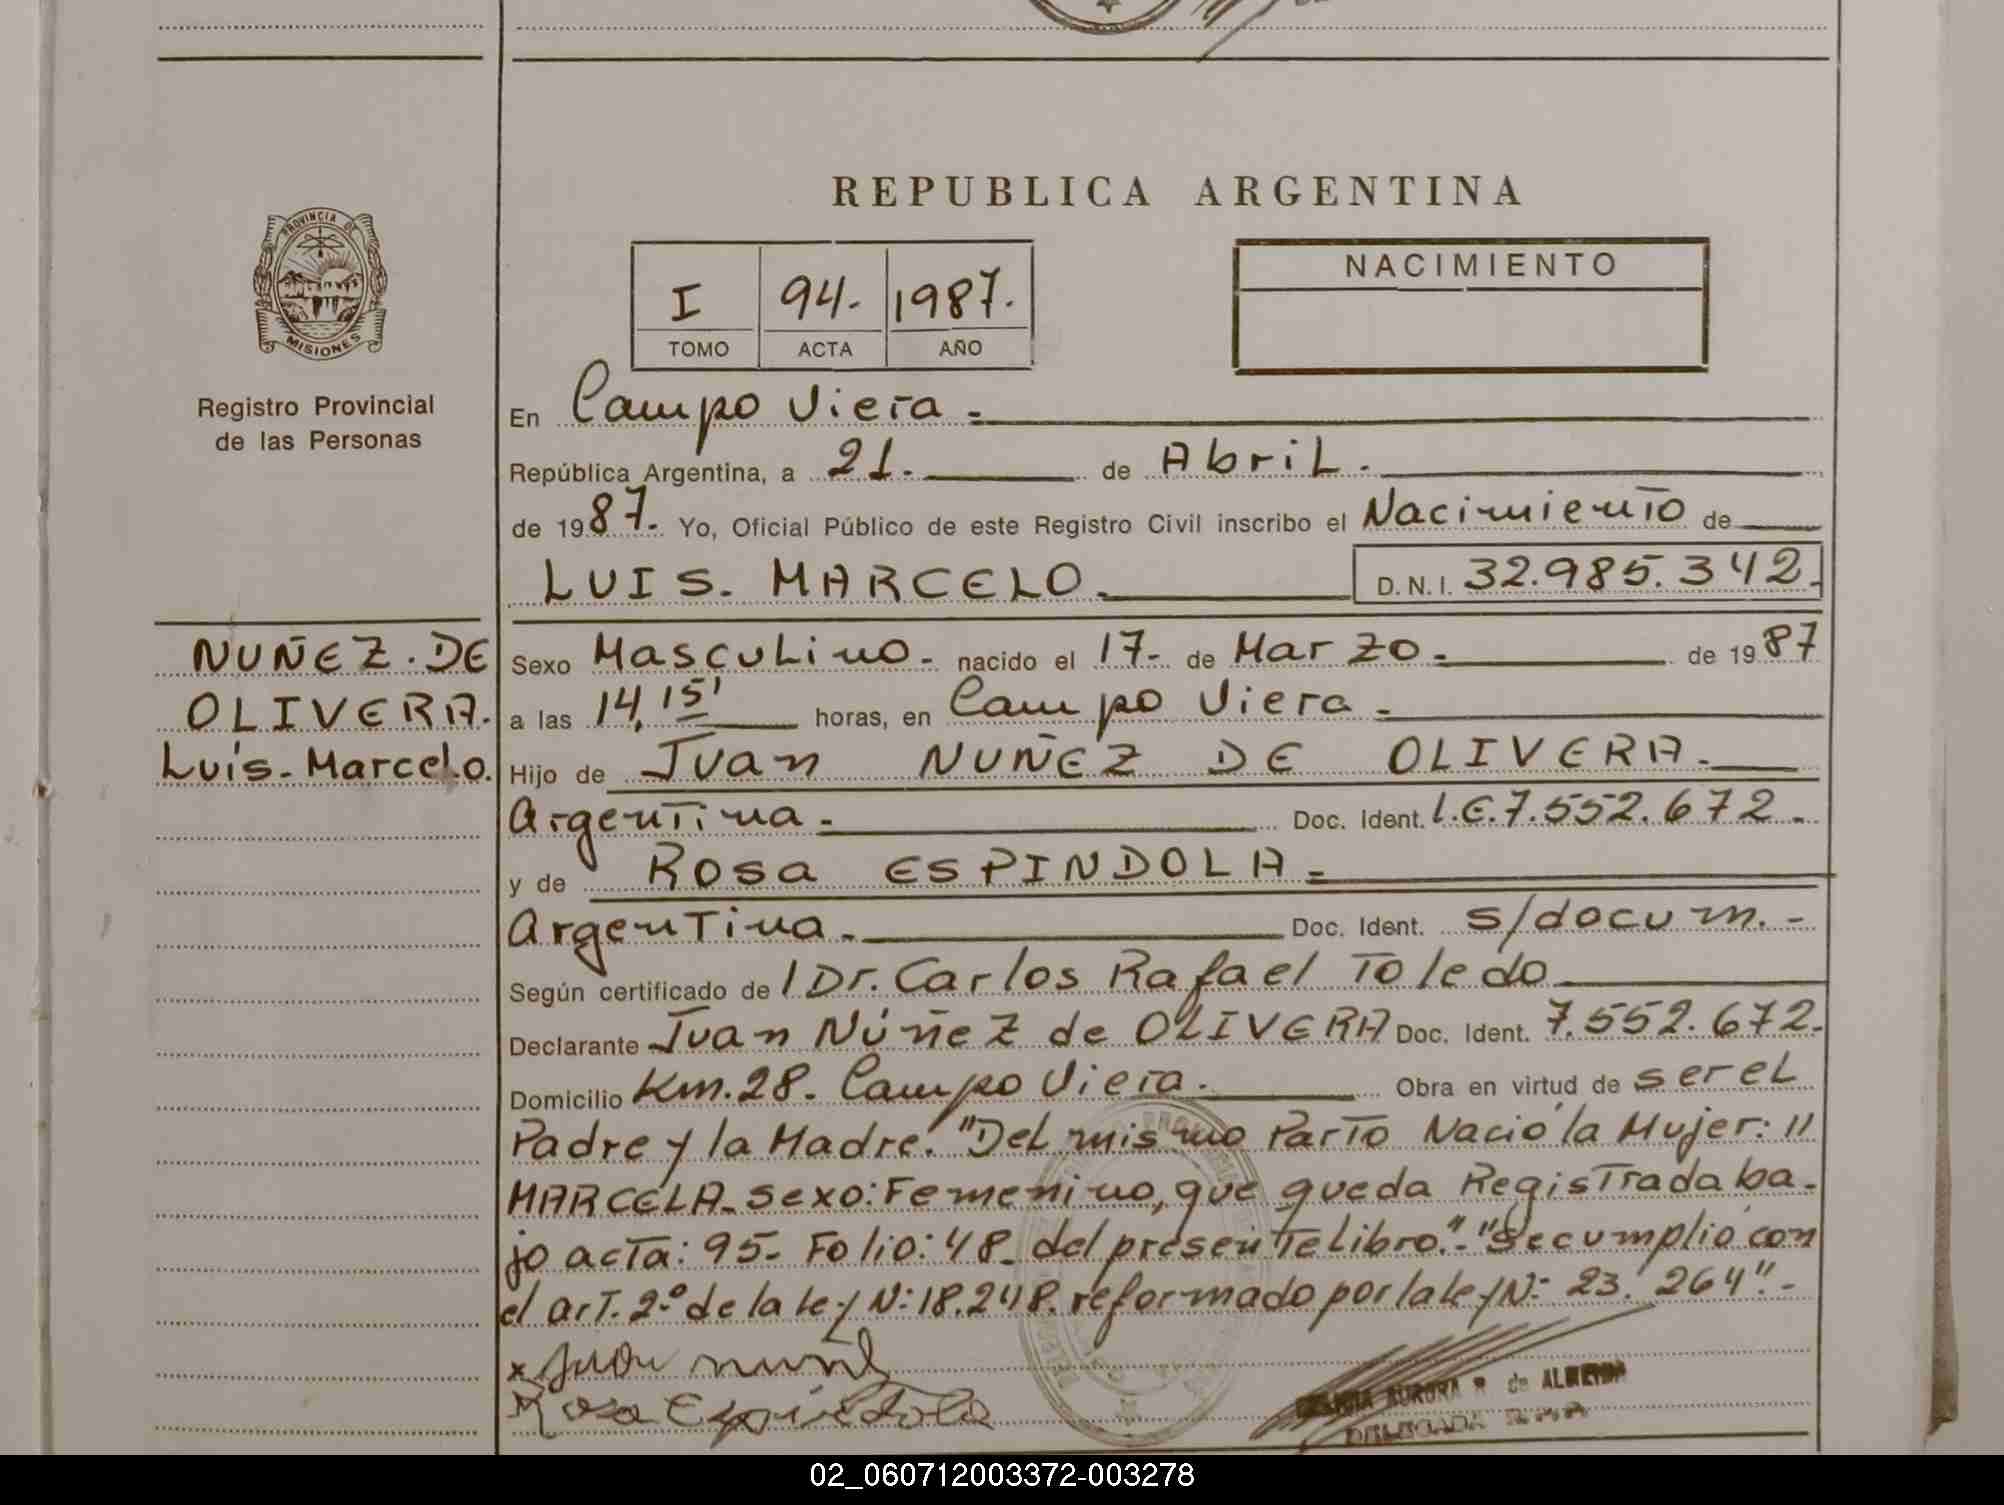 REPUBLICA ARGENTINA
PROVINCIA DE
MISIONES
Registro Provincial
de las Personas
I 94. 1987.
TOMO ACTA AÑO
NACIMIENTO
En Campo Viera.
República Argentina, a 21. de Abril.
de 1987. Yo, Oficial Público de este Registro Civil inscribo el Nacimiento de
LUIS. MARCELO. D.N.I. 32.985.342.
NUÑEZ. DE
OLIVERA.
Luis. Marcelo.
Sexo Masculino. nacido el 17. de Marzo. de 1987
a las 14,15' horas, en Campo Viera.
Hijo de Juan NUÑEZ DE OLIVERA.
Argentina. Doc. Ident. L.E.7.552.672.
y de Rosa ESPINDOLA.
Argentina. Doc. Ident. s/docum.-
Según certificado de / Dr. Carlos Rafael Toledo
Declarante Juan Núñez de OLIVERA Doc. Ident. 7.552.672.
Domicilio Km.28. Campo Viera. Obra en virtud de ser el
Padre y la Madre. "Del mismo Parto Nació la Mujer: //
MARCELA. sexo: Femenino, que queda Registrada ba-
jo acta: 95. Folio: 48. del presente libro".- "Se cumplió con
el art. 2º de la ley N: 18.248. reformado por la ley N: 23.264".-
x Juan
Rosa Espindola
AURORA R. de ALMEIDA
DELEGADA
02_060712003372-003278